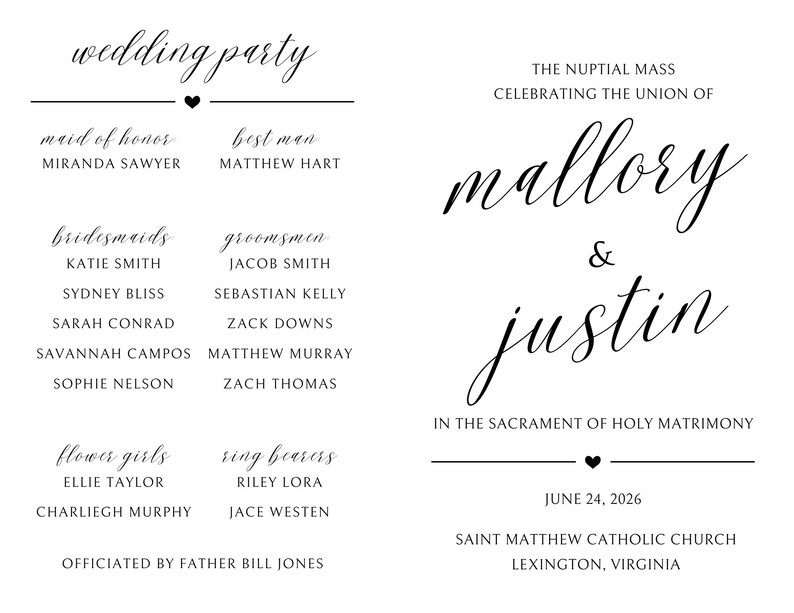 wedding party
maid of honor
MIRANDA SAWYER
best man
MATTHEW HART
bridesmaids
KATIE SMITH
SYDNEY BLISS
SARAH CONRAD
SAVANNAH CAMPOS
SOPHIE NELSON
groomsmen
JACOB SMITH
SEBASTIAN KELLY
ZACK DOWNS
MATTHEW MURRAY
ZACH THOMAS
flower girls
ELLIE TAYLOR
CHARLIEGH MURPHY
ring bearers
RILEY LORA
JACE WESTEN
OFFICIATED BY FATHER BILL JONES
THE NUPTIAL MASS
CELEBRATING THE UNION OF
mallory
&
justin
IN THE SACRAMENT OF HOLY MATRIMONY
JUNE 24, 2026
SAINT MATTHEW CATHOLIC CHURCH
LEXINGTON, VIRGINIA